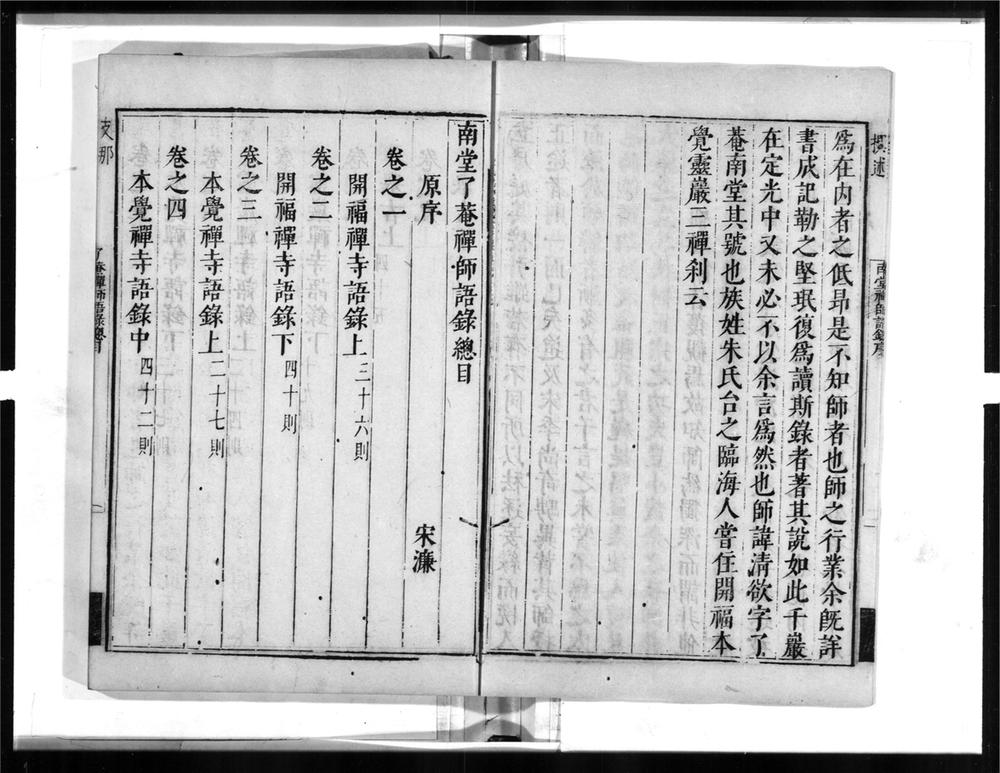 撰述
南堂禪師語錄序
爲在内者之低昂是不知師者也師之行業余旣詳
書成記勒之堅珉復爲讀斯錄者著其說如此千巖
在定光中又未必不以余言爲然也師諱清欲字了
菴南堂其號也族姓朱氏台之臨海人嘗住開福本
覺靈巖三禪刹云
南堂了菴禪師語錄總目
原序 宋濂
卷之一
開福禪寺語錄上三十六則
卷之二
開福禪寺語錄下四十則
卷之三
本覺禪寺語錄上二十七則
卷之四
本覺禪寺語錄中四十二則
支那
了菴禪師語錄總目
一